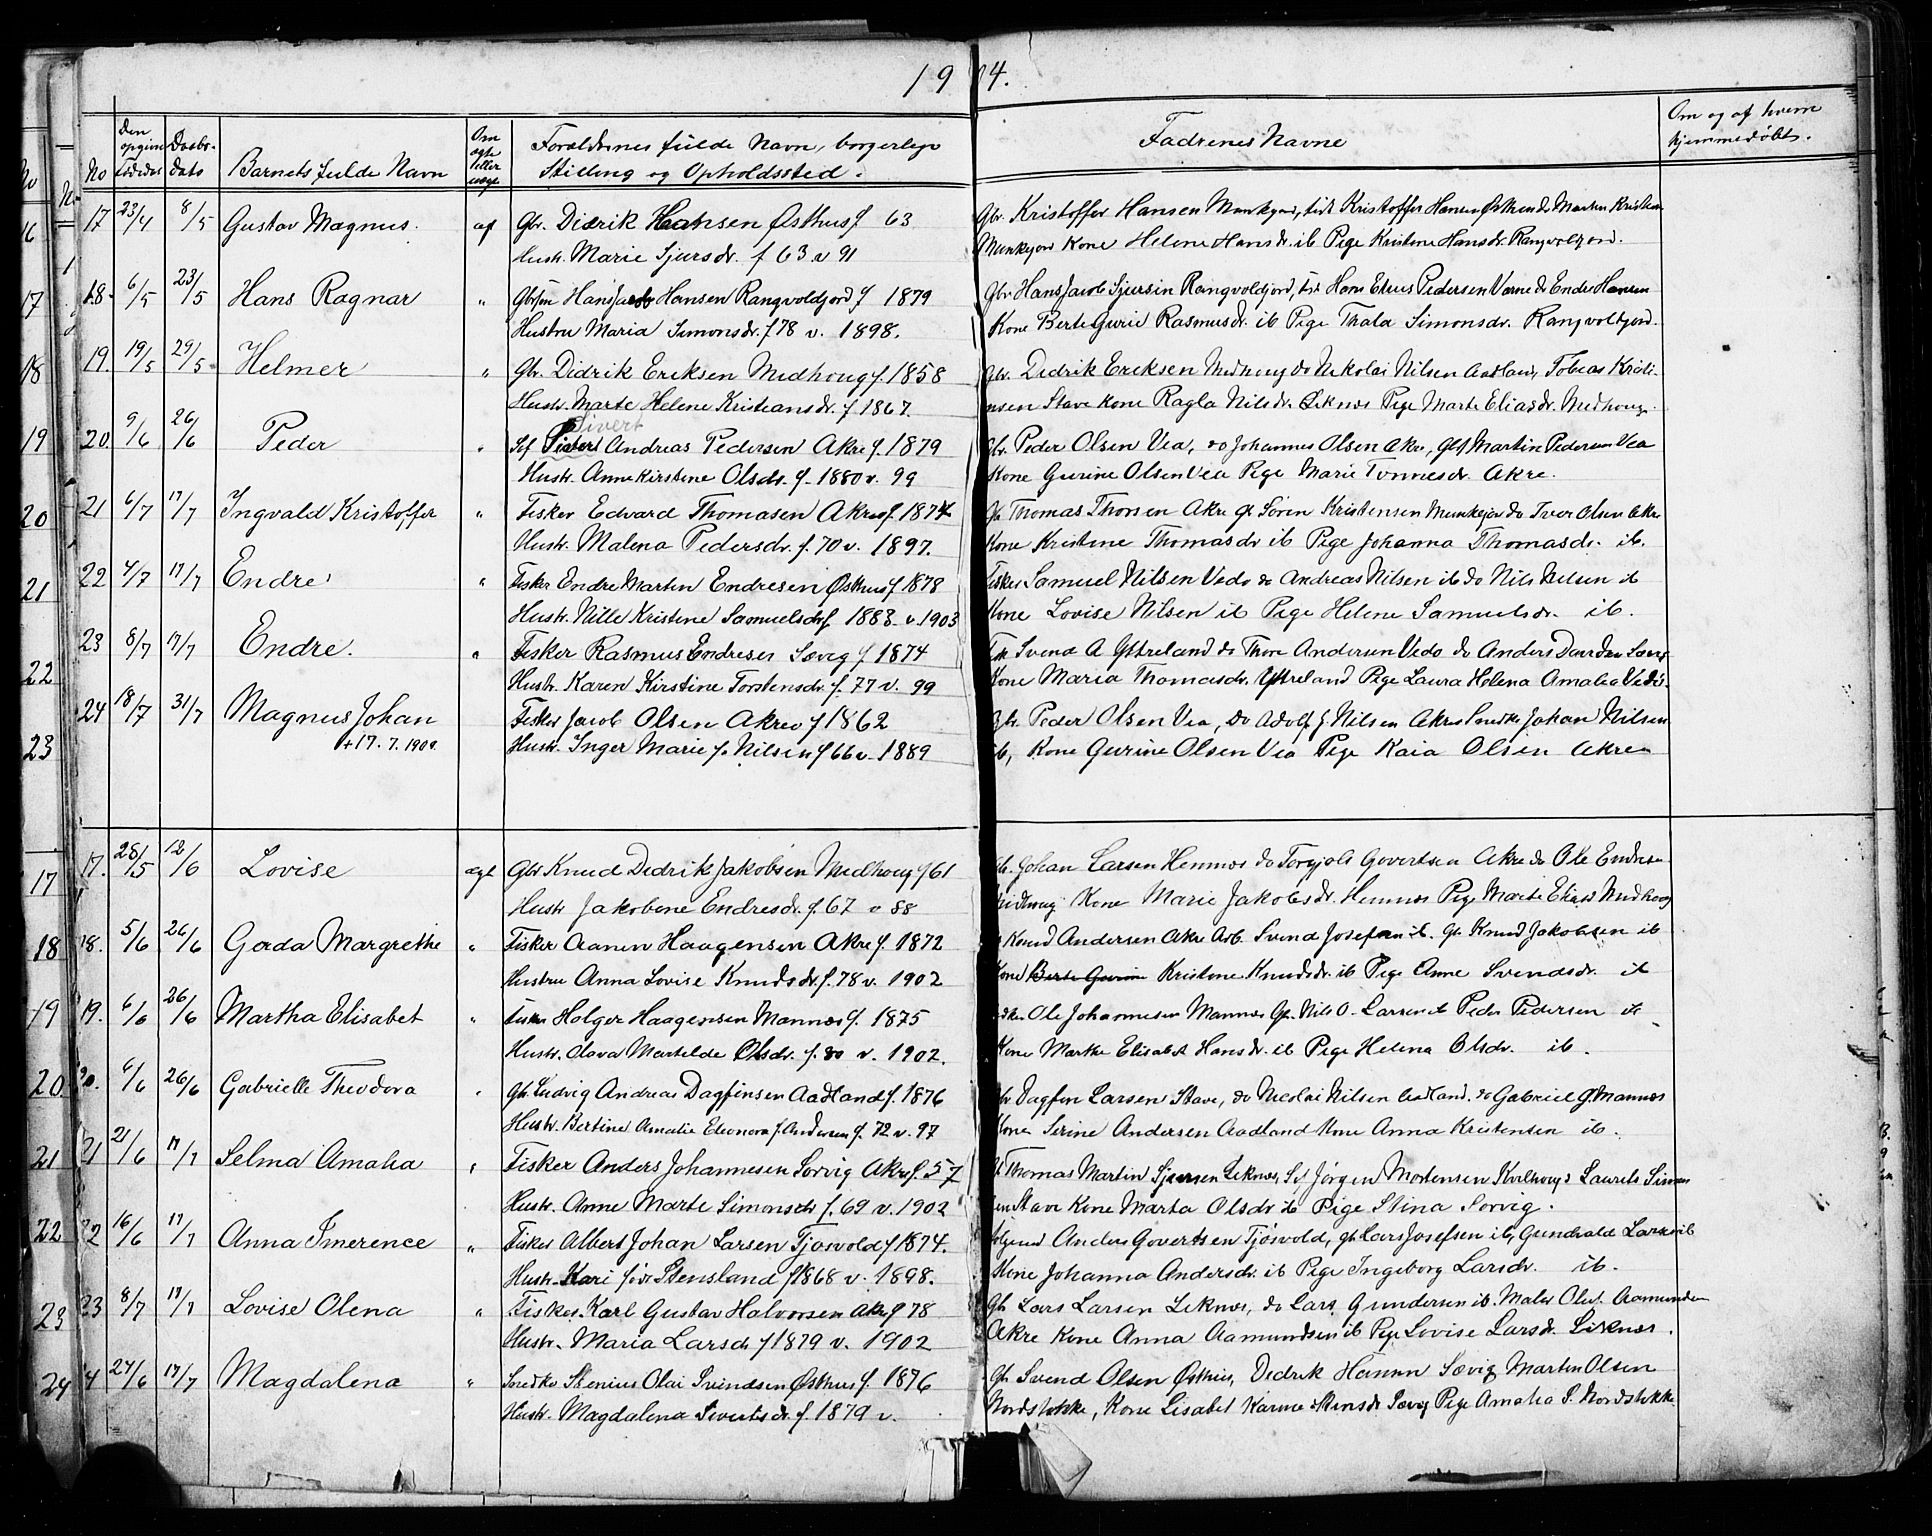 1904.
No
Den opgivne Fødedat
Daabsdato
Barnets fulde Navn
Om ægte eller uægt
Forældrenes fulde Navn, borgerlige
Stilling og Opholdssted.
Fadrenes Navne
Om og af hvem
hjemmedøbt.
17 23/4 8/5 Gustav Magnus. æg Gbr. Didrik Hansen Østhus f. 63 Gbr. Kristoffer Hansen Munkejor, Kristoffer Hansen Østhus do Marten Kristen
Hustr. Marie Sjursdr. f 63 v 91 Munkejor Kone Helene Hansdr. ib Pige Kristine Hansdr. Rangvoldjord.
18 6/5 23/5 Hans Ragnar " Hans Jacob Hansen Rangvoldjord f 1879 Gbr Hans Jacob Sjursen Rangvoldjord, Hans Elius Pedersen Varne do Endre Hansen
Hustru Maria Simonsdr. f 78 v. 1898. Kone Berte Gurie Rasmusdr. ib Pige Thala Simonsdr. Rangvoldjord.
19. 19/5 29/5 Helmer " Gbr. Didrik Eriksen Midhoug f. 1858 Gbr. Didrik Eriksen Midhoug do Nikolai Nilsen Aadland, Tobias Kristi-
Hustr. Marte Helene Kristiansdr. f 1867. ansen Stave Kone Ragla Nilsdr. Liknes Pige Marte Eliasdr. Midhoug.
Sivert
20. 9/6 26/6 Peder " Andreas Pedersen Akre f. 1879 Gbr. Peder Olsen Vea, do Johannes Olsen Akre, Martin Pedersen Vea
Hustr. Anne Kirstine Olsdr. f. 1880 v. 99 Kone Gurine Olsen Vea Pige Marie Tønnesdr. Akre.
21 6/7 17/7 Ingvald Kristoffer " Fisker Edvard Thomasen Akre f. 1874 Gb Thomas Thorsen Akre gb Søren Kristensen Munkejor do Iver Olsen Akre
Hustr. Malena Pedersdr. f. 70 v. 1897. Kone Kristine Thomasdr ib Pige Johanna Thomasdr. ib.
22 4/7 17/7 Endre " Fisker Endre Martin Endresen Østhus f 1878 Fisker Samuel Nilsen Vedø do Andreas Nilsen ib do Nils Nilsen ib
Hustr. Nille Kristine Samuelsdr f. 1883 v. 1903 Kone Lovise Nilsen ib Pige Helene Samuelsdr. ib.
23 8/7 17/7 Endre. " Fisker Rasmus Endresen Sævig f 1874 Svend A Yttreland do Thore Andersen Vedø do Anders Sævig
Hustr. Karen Kirstine Torstensdr. f. 77 v. 99 Kone Maria Thomasdr. Yttreland Pige Laura Helena Amalia Vedø.
24 18/7 31/7 Magnus Johan Fisker Jacob Olsen Akre f 1862 Gbr. Peder Olsen Vea, do Adolf J. Nilsen Akre Snedker Johan Nilsen
+17. 7. 190 Hustr. Inger Marie f. Nilsen f 66 v. 1889 ib, Kone Gurine Olsen Vea Pige Kaia Olsen Akre
17. 28/5 12/6 Lovise ægt Gbr Knud Didrik Jakobsen Midhoug f 61 Gb. Johan Larsen Hemnes do Torgjels Govertsen Akre do Ole Endresen
Hustr Jakobene Endresdr. f. 67 v 88 Midhoug Kone Marie Jakobsdr. Hemnes Pige Marte Elias Midhoug
18. 5/6 26/6 Gerda Margrethe " Fisker Aanen Haagensen Akre f. 1872 Knud Andersen Akre Arb. Svend Josefsen ib. Gb Knud Jakobsen ib
Hustru Anna Lovise Knudsdr. f. 78 v. 1902 Kone Kristine Knudsdr. ib Pige Anne Svendsdr. ib
19. 6/6 26/6 Martha Elisabet " Fisker Holger Haagensen Mannes f. 1875 Ole Johannesen Mannes Gb. Nils O. Larsen ib Peder Pedersen ib
Hustr. Olava Martilde Olsdr. f. 80 v. 1902. Kone Marthe Elisabet Hansdr. ib Pige Helena Olsdr. ib.
20. 6/6 26/6 Gabrielle Theodora " Gb. Ludvig Andreas Dagfinsen Aadland f. 1876 Gbr Dagfin Larsen Stave, do Nicolai Nilsen Aadland. do Gabriel G Mannes
Hustr. Bertine Amalie Eleonora f. Andersen f. 72 v. 97 Kone Serine Andersen Aadland Kone Anna Kristensen ib.
21 21/6 17/7 Selma Amalia " Fisker Anders Johannesen Sørvig Akre f. 57 Gb Thomas Martin Sjursen Liknes, Jørgen Mortensen Laurits Simon
Hustr. Anne Marte Simonsdr f. 69 v. 1902 sen Stave Kone Marta Olsdr ib Pige Stina Sørvig.
22 16/6 17/7 Anna Imerence " Fisker Albert Johan Larsen Tjøsvold f 1874. Anders Govertsen Tjøsvold, gb Lars Josefsen ib, Gundvald Larsen ib
Hustr. Kari Stensland f 1868 v. 1898. Kone Johanna Andersdr. ib Pige Ingeborg Larsdr. ib.
23 8/7 17/7 Lovise Olena " Fisker Karl Gustav Halvorsen Akre f 78 Gb Lars Larsen Liknes, do Lars Gundersen ib. Maler Aamundsen
Hustr. Maria Larsdr f 1879 v. 1902 Akre Kone Anna Aamundsen ib Pige Lovise Larsdr. Liknes.
24 27/6 17/7 Magdalena " Snedker Stenius Olai Svendsen Østhus f. 1876 Gb Svend Olsen Østhus, Didrik Hansen Sævig Martin Olsen
Hustr. Magdalena Sivertsdr. f. 1879 v. Nordstokke, Kone Lisabet Karine Sævig Pige Amalia S. Nordstokke